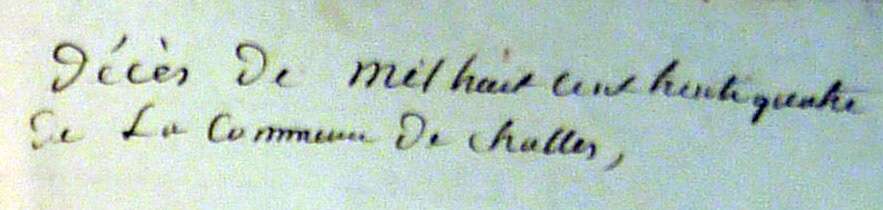 Décès De mil huit cent trente quatre
De La Commune De challes,